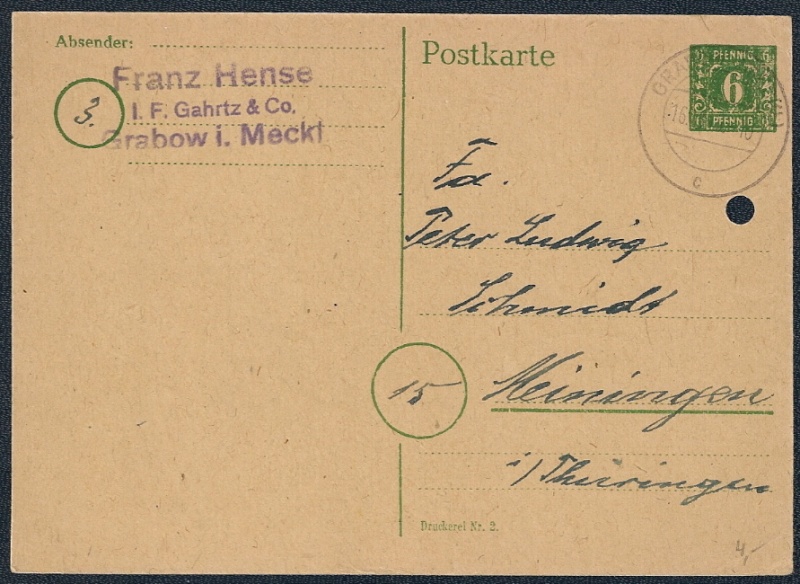 Absender:
Franz Hense
I. F. Gahrtz & Co.
Grabow i. Meckl
3.
Postkarte
PFENNIG
6 6
6
6 6
PFENNIG
c
Fa.
Peter Ludwig
Schmidt
15
Meiningen
i/Thüringen
Druckerei Nr. 2.
4,-